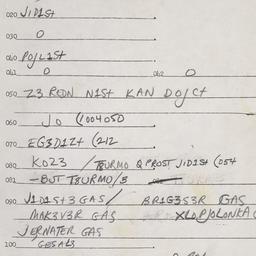 020 JIDISt
030 O
040 POJLISt
041 O 042 O
050 Z3 RODN NISt KAN DOJCt
060 JO (1004050
070 EG3DIZt (212
080 KOZ3 / TSURMO Q PROST JIDISt (054
081 -BUT TSURMO/3
090 JIDISt3 GAS/ BRIG3S3R GAS
MAK3V3R GAS XLOPJOLONKA G
JERNATER GAS
100 GESALS